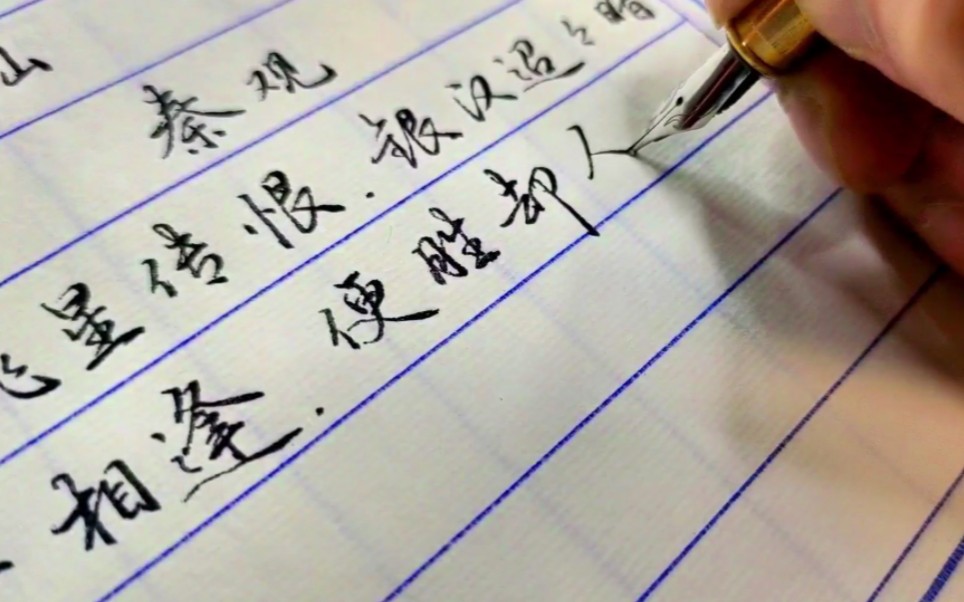 秦观
飞星传恨.银汉迢々暗
相逢.便胜却人